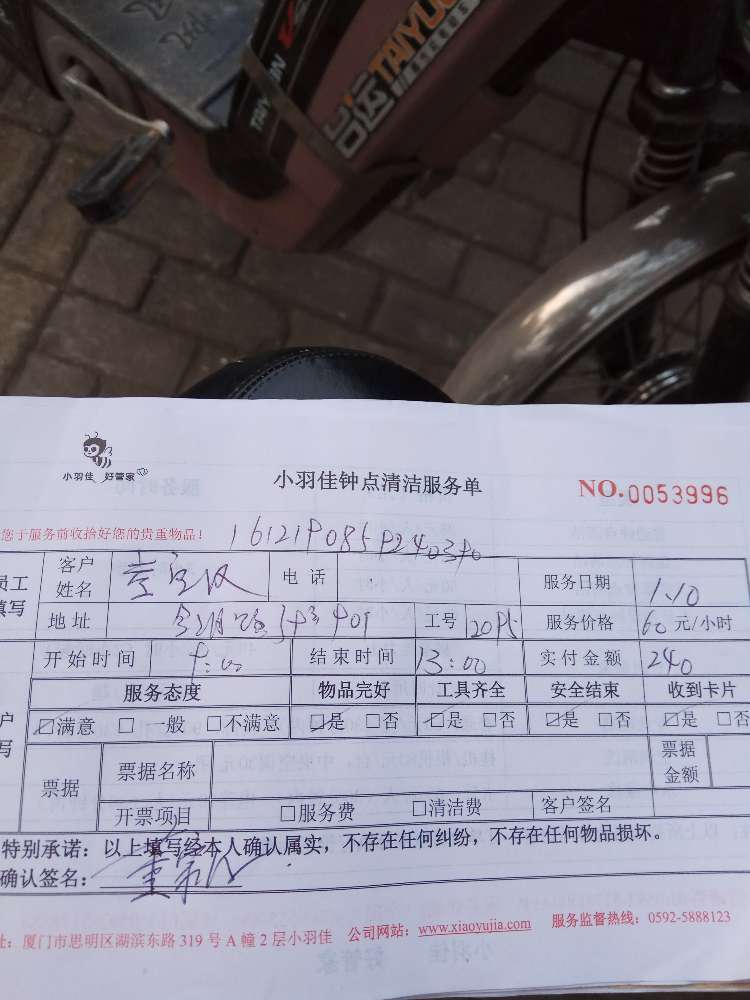 TAIYUN
台运TAIYUE
小羽佳 好管家
小羽佳钟点清洁服务单
NO.0053996
您于服务前收拾好您的贵重物品！
员工填写
客户姓名 电话 服务日期 1.10
地址 工号 服务价格 60元/小时
开始时间 结束时间 13:00 实付金额 240
服务态度 物品完好 工具齐全 安全结束 收到卡片
满意 一般 不满意 是 否 是 否 是 否 是 否
票据 票据名称 票据金额
开票项目 服务费 清洁费 客户签名
特别承诺：以上填写经本人确认属实，不存在任何纠纷，不存在任何物品损坏。
确认签名：
址：厦门市思明区湖滨东路319号A幢2层小羽佳 公司网站：www.xiaoyujia.com 服务监督热线：0592-5888123